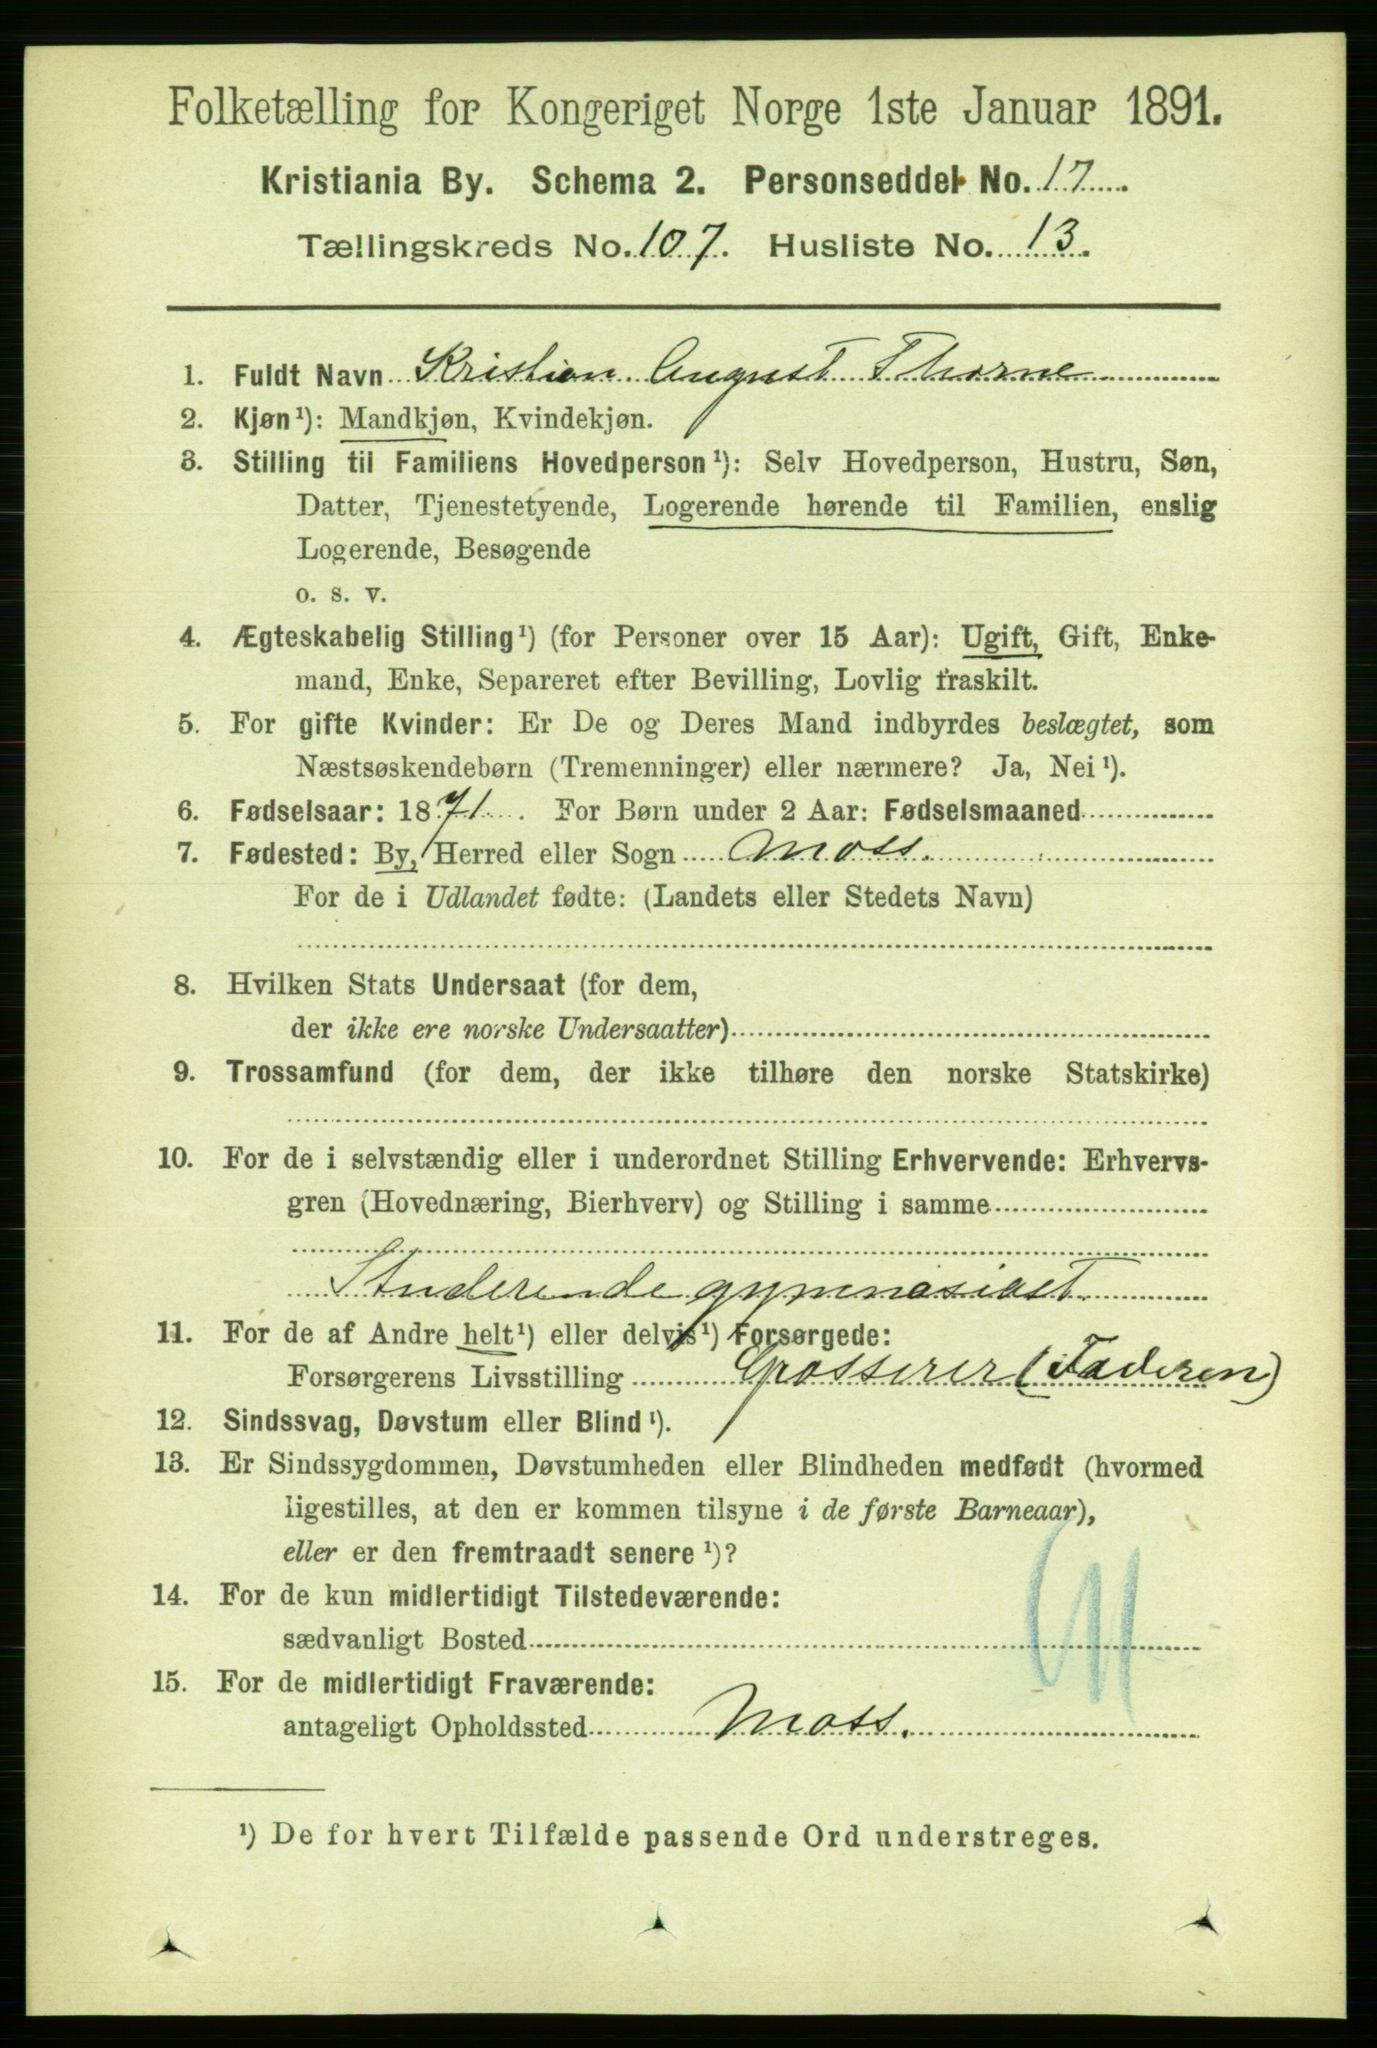 Folketælling for Kongeriget Norge 1ste Januar 1891.
Kristiania By. Schema 2. Personseddel No. 17.
Tællingskreds No. 107. Husliste No. 13.
1. Fuldt Navn Kristian August Thorne
2. Kjøn¹): Mandkjøn, Kvindekjøn.
3. Stilling til Familiens Hovedperson¹): Selv Hovedperson, Hustru, Søn,
Datter, Tjenestetyende, Logerende hørende til Familien, enslig
Logerende, Besøgende
o. s. v.
4. Ægteskabelig Stilling¹) (for Personer over 15 Aar): Ugift, Gift, Enke-
mand, Enke, Separeret efter Bevilling, Lovlig fraskilt.
5. For gifte Kvinder: Er De og Deres Mand indbyrdes beslægtet, som
Næstsøskendebørn (Tremenninger) eller nærmere? Ja, Nei¹).
6. Fødselsaar: 1871. For Børn under 2 Aar: Fødselsmaaned
7. Fødested: By, Herred eller Sogn Moss.
For de i Udlandet fødte: (Landets eller Stedets Navn)
8. Hvilken Stats Undersaat (for dem,
der ikke ere norske Undersaatter)
9. Trossamfund (for dem, der ikke tilhøre den norske Statskirke)
10. For de i selvstændig eller i underordnet Stilling Erhvervende: Erhvervs-
gren (Hovednæring, Bierhverv) og Stilling i samme
Studerende gymnasiast.
11. For de af Andre helt¹) eller delvis¹) Forsørgede:
Forsørgerens Livsstilling Grosserer (Faderen)
12. Sindssvag, Døvstum eller Blind¹).
13. Er Sindssygdommen, Døvstumheden eller Blindheden medfødt (hvormed
ligestilles, at den er kommen tilsyne i de første Barneaar),
eller er den fremtraadt senere¹)?
14. For de kun midlertidigt Tilstedeværende:
sædvanligt Bosted
15. For de midlertidigt Fraværende:
antageligt Opholdssted Moss.
¹) De for hvert Tilfælde passende Ord understreges.